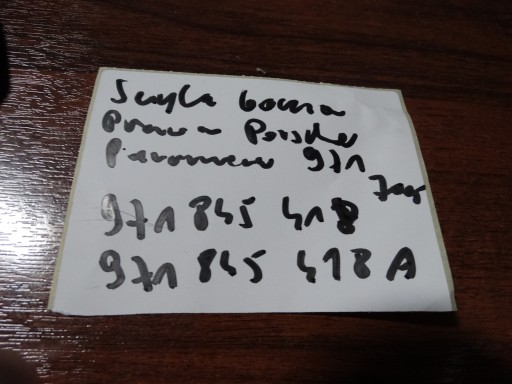 Szyba boczna
Prawa Porsche
Panamera 971
700
971 845 418
971 845 418 A